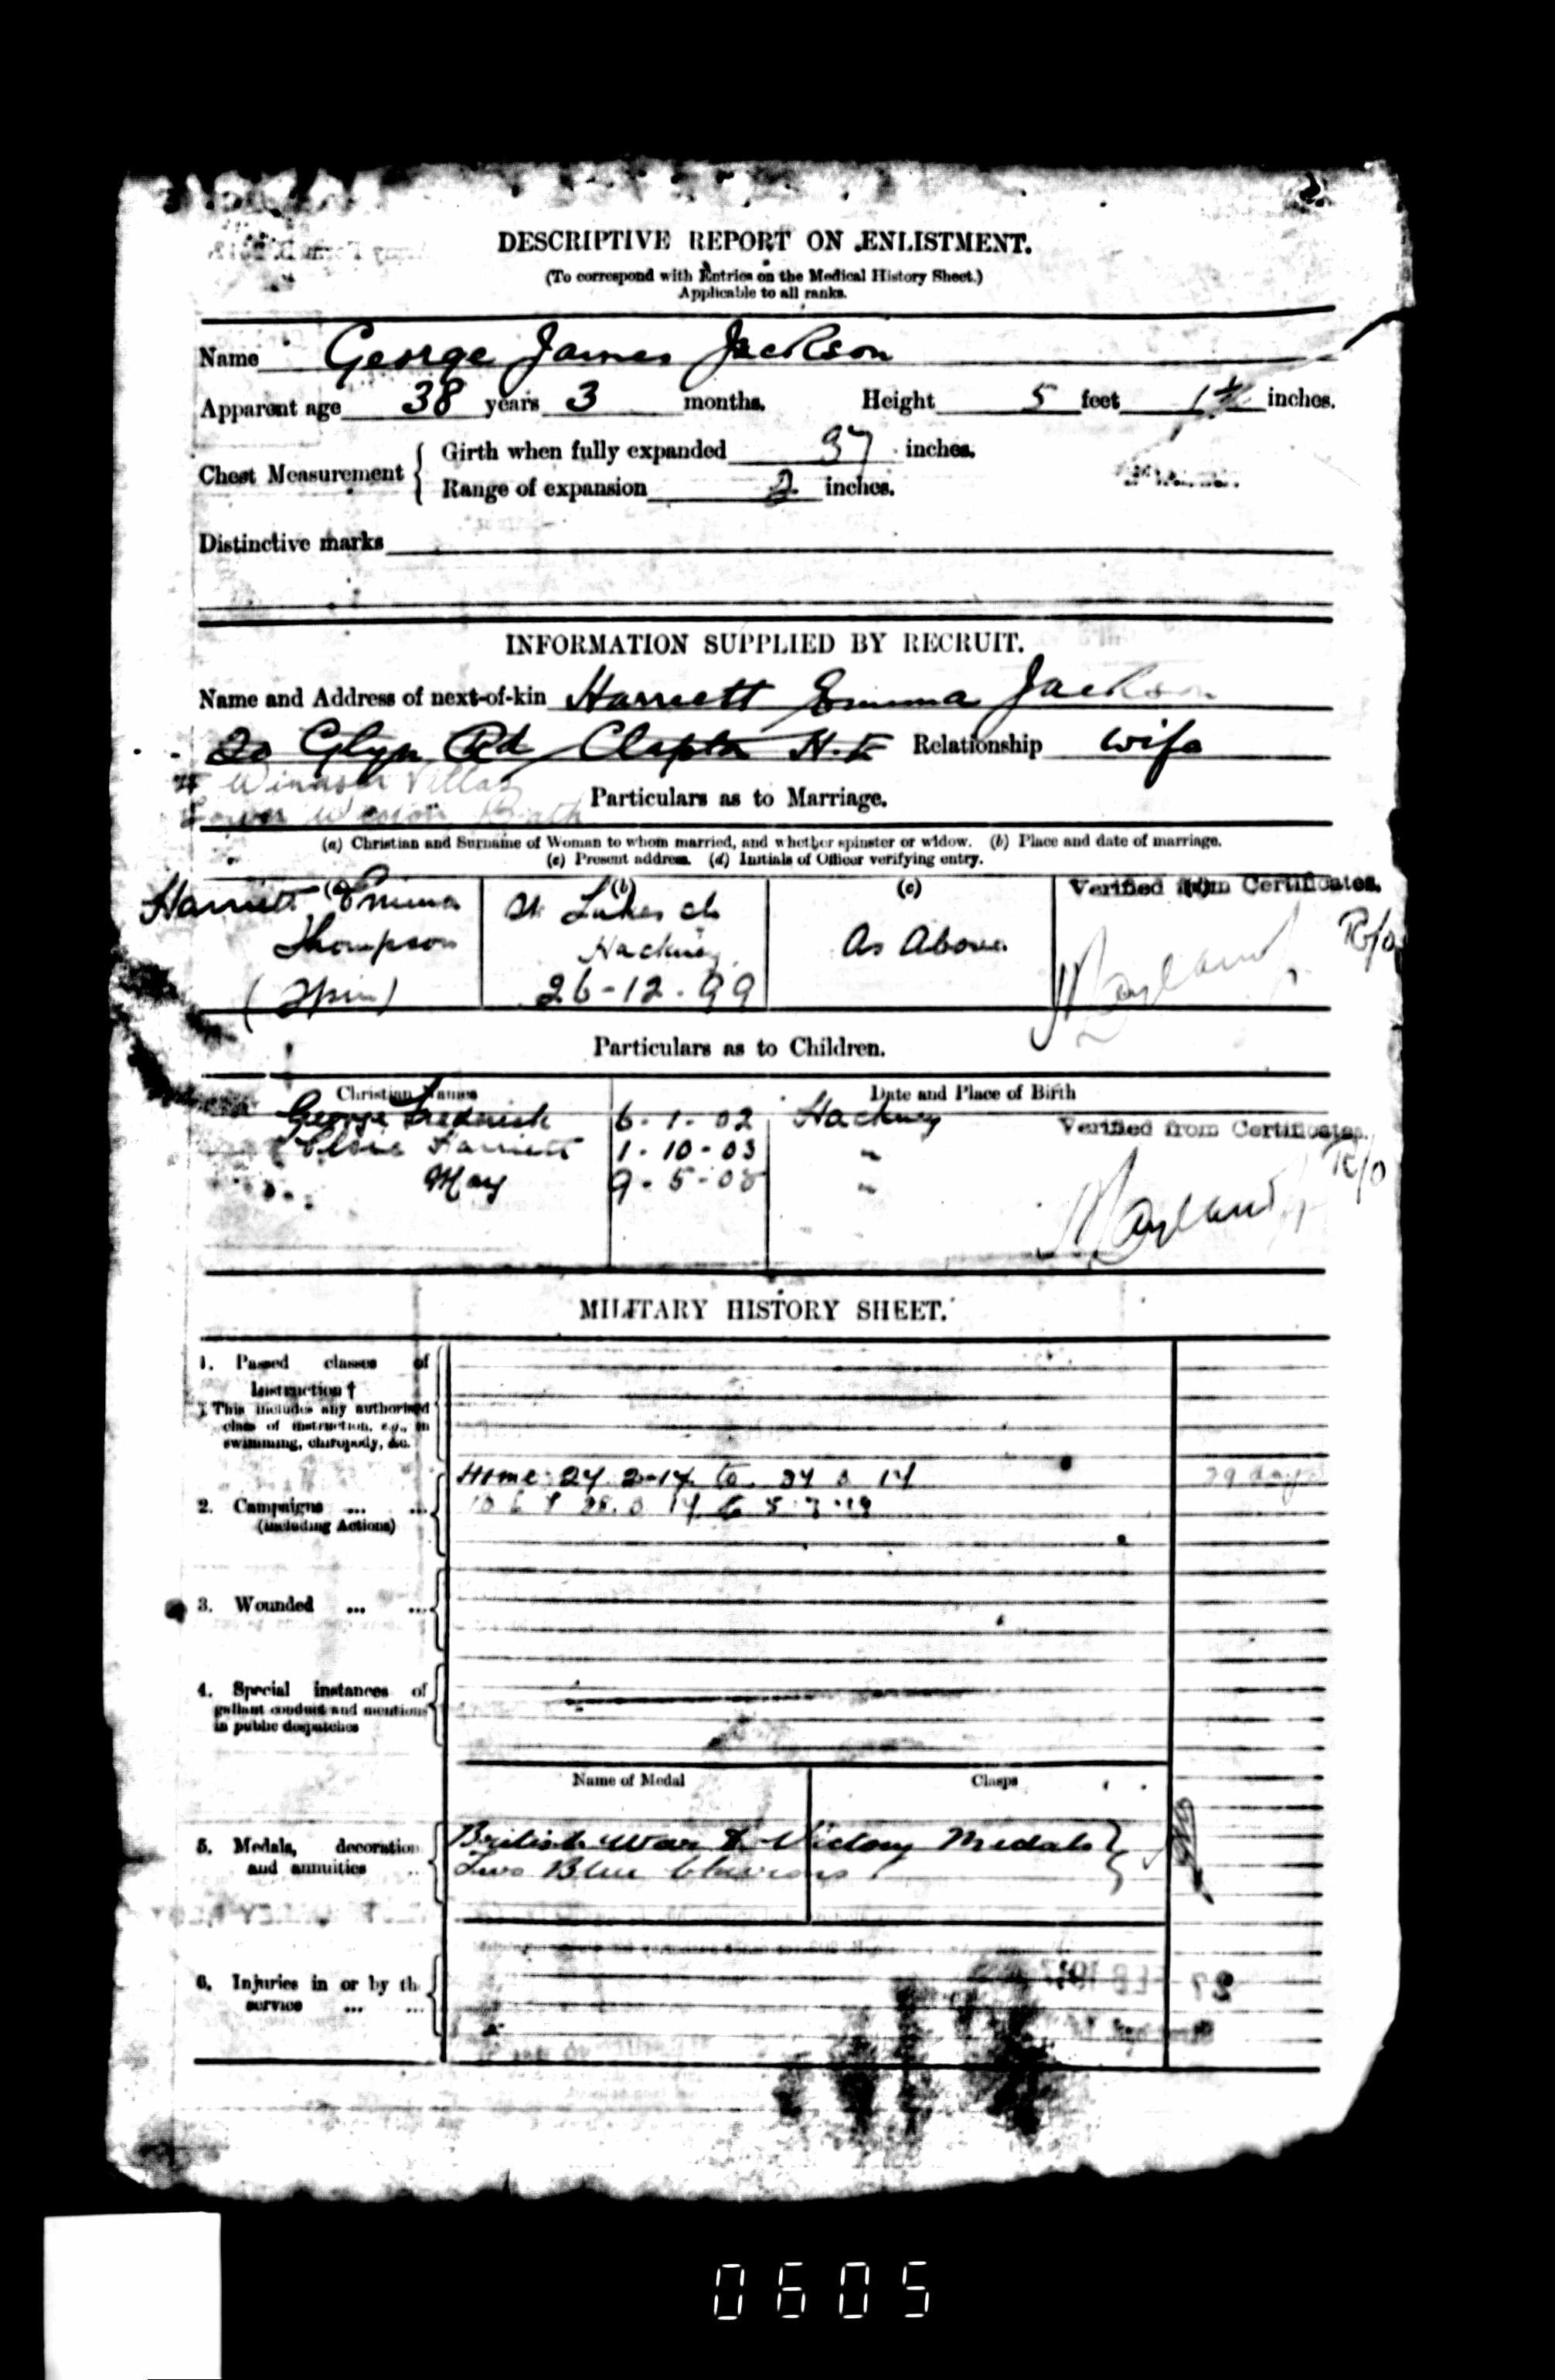 DESCRIPTIVE REPORT ON ENLISTMENT.
(To correspond with Entries on the Medical History Sheet.)
Applicable to all ranks.
Name George James Jackson
Apparent age 38 years 3 months. Height 5 feet inches.
Chest Measurement { Girth when fully expanded 37 inches.
Range of expansion 2 inches.
Distinctive marks
INFORMATION SUPPLIED BY RECRUIT.
Name and Address of next-of-kin Harriett Emma Jackson
20 Glyn Rd Clapton N.E Relationship wife
Windsor Villas
Lower Weston Bath
Particulars as to Marriage.
(a) Christian and Surname of Woman to whom married, and whether spinster or widow. (b) Place and date of marriage.
(c) Present address. (d) Initials of Officer verifying entry.
(a) (b) (c) Verified from Certificates.
Harriett Emma St Lukes ch
Thompson Hackney As Above.
(Spin) 26-12-99
Particulars as to Children.
Christian Names Date and Place of Birth
George Frederick 6-1-02 Hackney Verified from Certificates.
Elsie Harriett 1-10-03 "
May 9-5-08 "
MILITARY HISTORY SHEET.
1. Passed classes of
Instruction †
† This includes any authorised
class of instruction, e.g., in
swimming, chiropody, &c.
Home 24 2-17 to 24 3 17 29 days
2. Campaigns ... ...
(including Actions)
3. Wounded ... ...
4. Special instances of
gallant conduct and mentions
in public despatches
Name of Medal Clasps
5. Medals, decoration
and annuities ..
British War & Victory Medals
Two Blue Chevrons
6. Injuries in or by th
service ... ...
0605